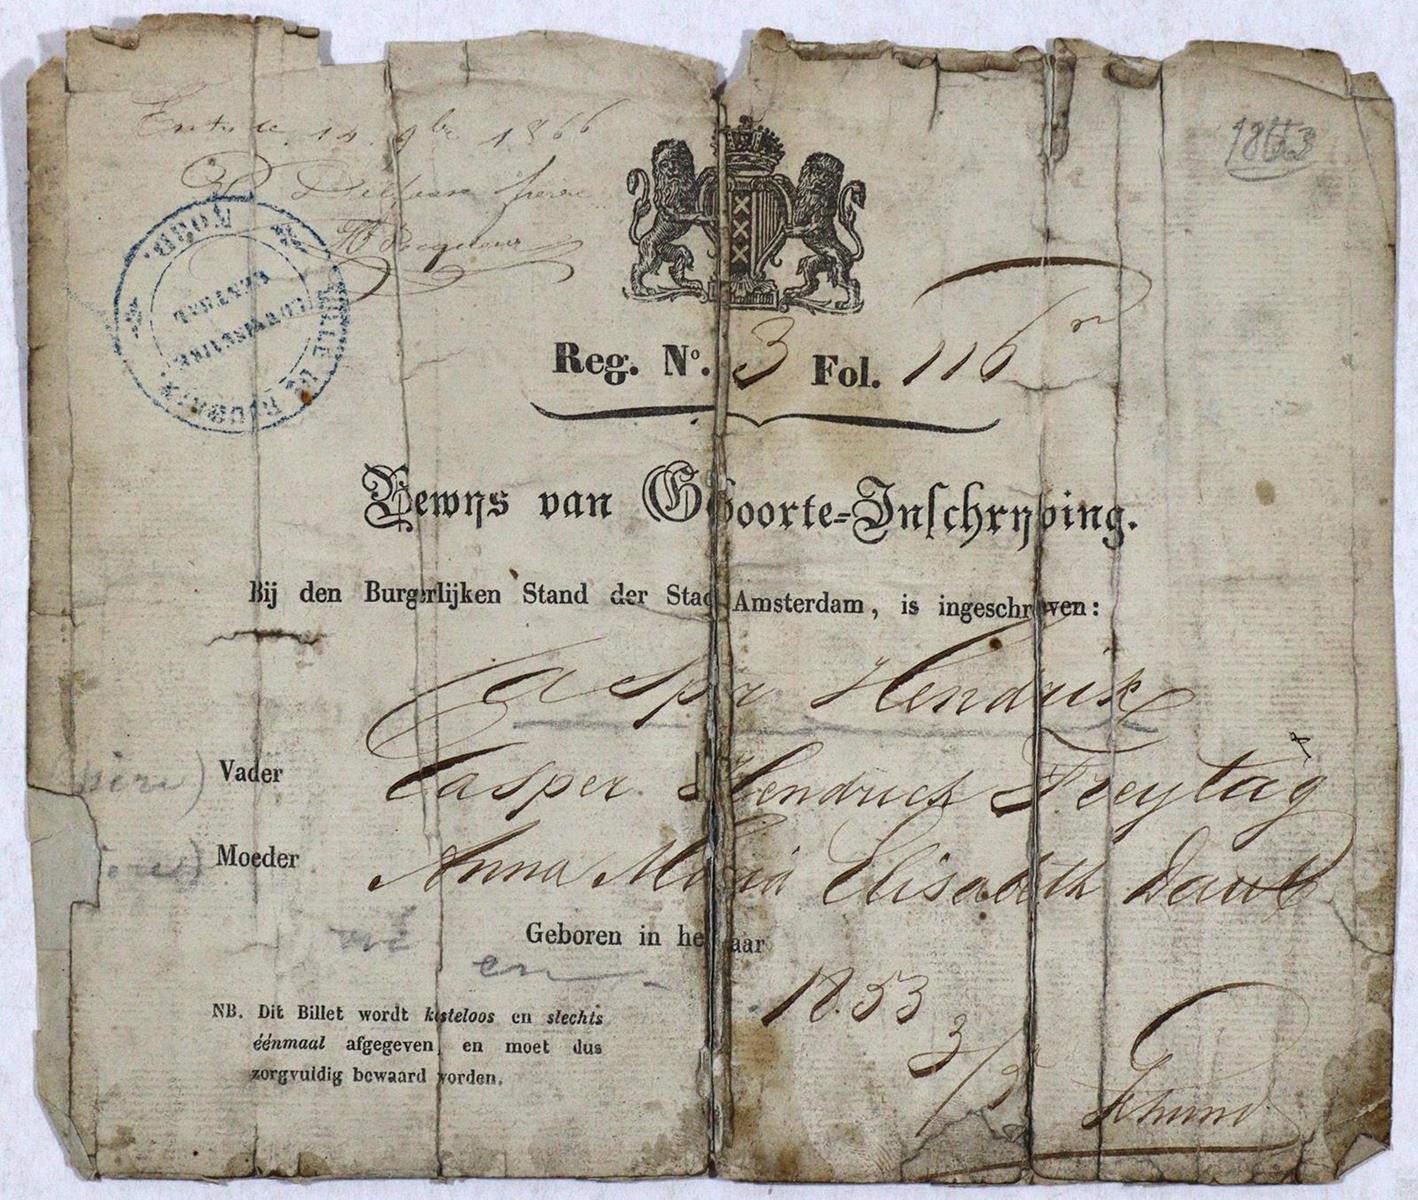 14 9bre 1866
1853
NORD.
VILLE DE ROUBAIX
COMMISSARIAT
CENTRAL
Reg. No. 3 Fol. 116
Bewijs van Geboorte-Inschrijving.
Bij den Burgerlijken Stand der Stad Amsterdam, is ingeschreven:
Caspar Hendrik
père) Vader Casper Hendrick Freytag
Moeder Anna Maria Elisabeth Daub
né Geboren in het jaar
en
1853
NB. Dit Billet wordt kosteloos en slechts
éénmaal afgegeven, en moet dus
zorgvuldig bewaard worden.
3/5